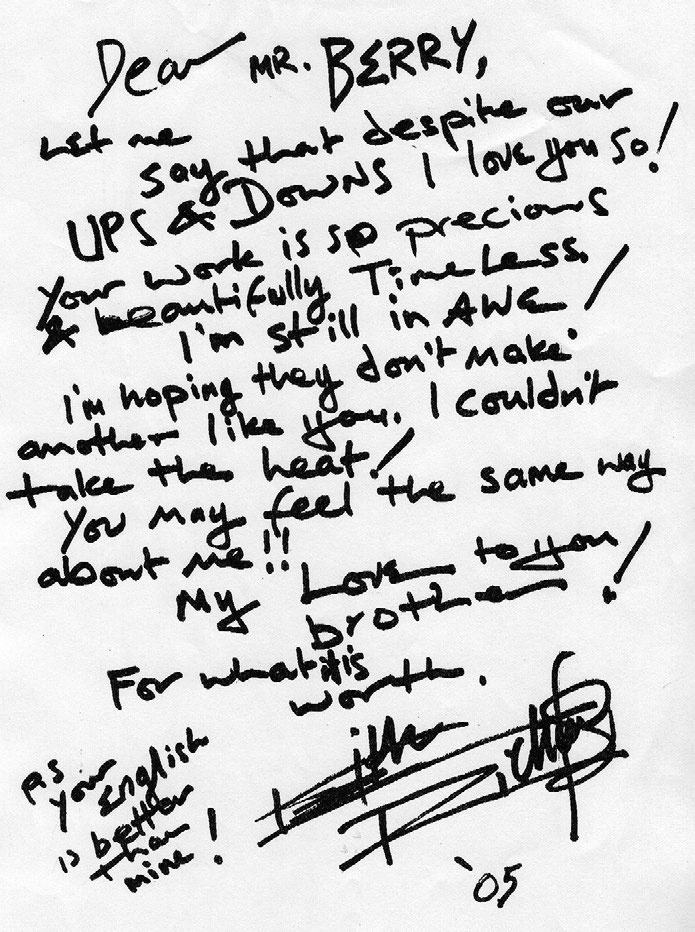 Dear MR. BERRY,
Let me
say that despite our
UPS & DOWNS I love you so!
Your work is so precious
& beautifully TimeLess.
I'm still in AWE!
I'm hoping they don't make
another like you. I couldn't
take the heat!
You may feel the same way
about me!!
My Love to you
brother!
For what it is
worth.
As
your
English
is better
than
mine!
'05